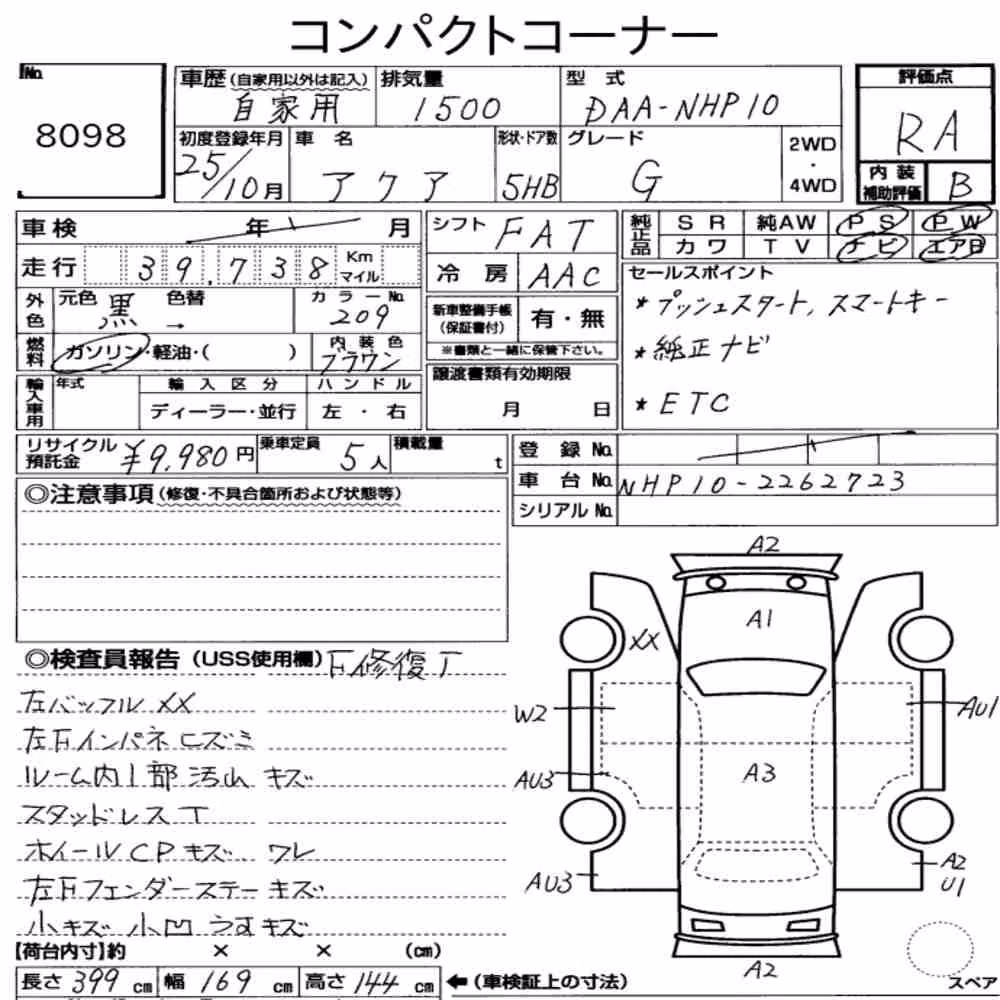 コンパクトコーナー
No.
8098
車歴(自家用以外は記入)
自家用
排気量
1500
型 式
DAA-NHP10
評価点
RA
内装補助評価
B
初度登録年月
25/10月
車 名
アクア
形状・ドア数
5HB
グレード
G
2WD
・
4WD
車検 年 月
シフト
FAT
純正品
SR 純AW PS PW
カワ TV ナビ エアB
走行 39,738 Km マイル
冷 房
AAC
セールスポイント
* プッシュスタート, スマートキー
* 純正ナビ
* ETC
外色
元色 黒 → 色替
カラーNo.
209
新車整備手帳
(保証書付)
有・無
※書類と一緒に保管下さい。
燃料
ガソリン・軽油・( )
内装色
ブラウン
譲渡書類有効期限
月 日
輸入車用
年式
輸入区分
ディーラー・並行
ハンドル
左・右
リサイクル預託金
¥9,980円
乗車定員
5人
積載量
t
登録 No.
車台 No. NHP10-2262723
シリアル No.
◎注意事項(修復・不具合箇所および状態等)
◎検査員報告(USS使用欄)
左バッフル XX
ルーム内 キズ
スタッドレス
ホイールCPキズ ワレ
フェンダーステーキズ
小キズ 小凹 うすキズ
A2
A1
XX
W2
AU1
AU3
A3
AU3
A2
U1
A2
スペア
【荷台内寸】約 × × (cm)
長さ 399 cm 幅 169 cm 高さ 144 cm
←(車検証上の寸法)